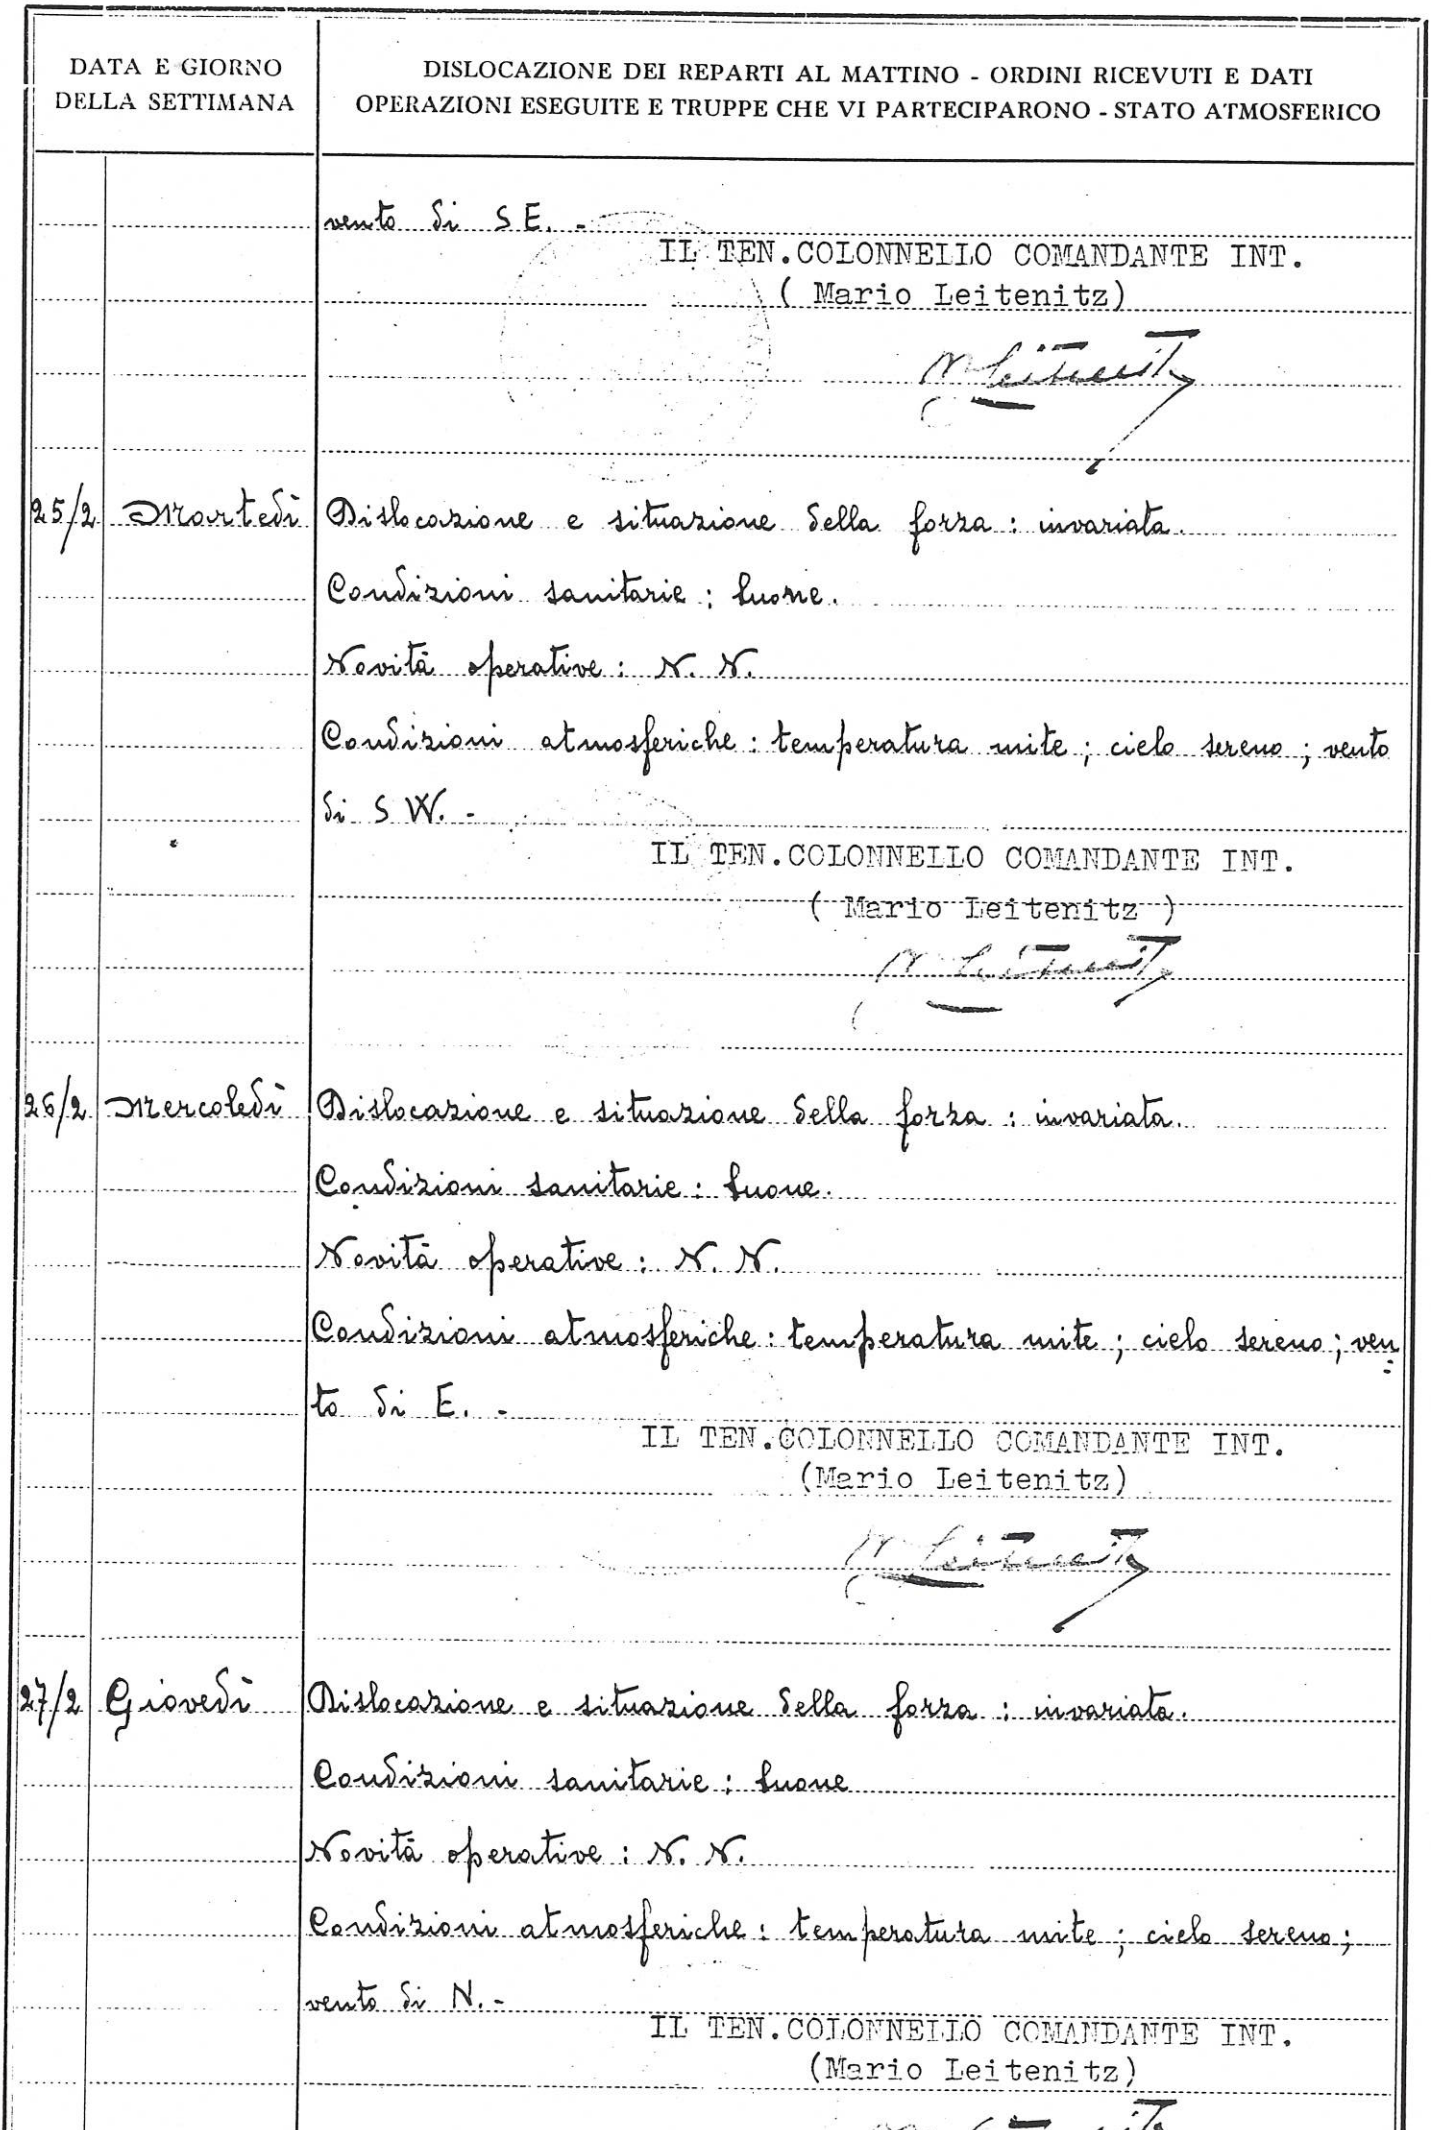 DATA E GIORNO
DELLA SETTIMANA
DISLOCAZIONE DEI REPARTI AL MATTINO - ORDINI RICEVUTI E DATI
OPERAZIONI ESEGUITE E TRUPPE CHE VI PARTECIPARONO - STATO ATMOSFERICO
vento di SE. -
IL TEN.COLONNELLO COMANDANTE INT.
( Mario Leitenitz)
M Leitenitz
25/2 Martedì Dislocazione e situazione della forza : invariata.
Condizioni sanitarie : buone.
Novità operative : N. N.
Condizioni atmosferiche : temperatura mite ; cielo sereno ; vento
di S W. -
IL TEN.COLONNELLO COMANDANTE INT.
( Mario Leitenitz )
M Leitenitz
26/2 Mercoledì Dislocazione e situazione della forza : invariata.
Condizioni sanitarie : buone.
Novità operative : N. N.
Condizioni atmosferiche : temperatura mite ; cielo sereno ; ven=
to di E. -
IL TEN.COLONNELLO COMANDANTE INT.
(Mario Leitenitz)
M Leitenitz
27/2 Giovedì Dislocazione e situazione della forza : invariata.
Condizioni sanitarie : buone
Novità operative : N. N.
Condizioni atmosferiche : temperatura mite ; cielo sereno ;
vento di N. -
IL TEN.COLONNELLO COMANDANTE INT.
(Mario Leitenitz)